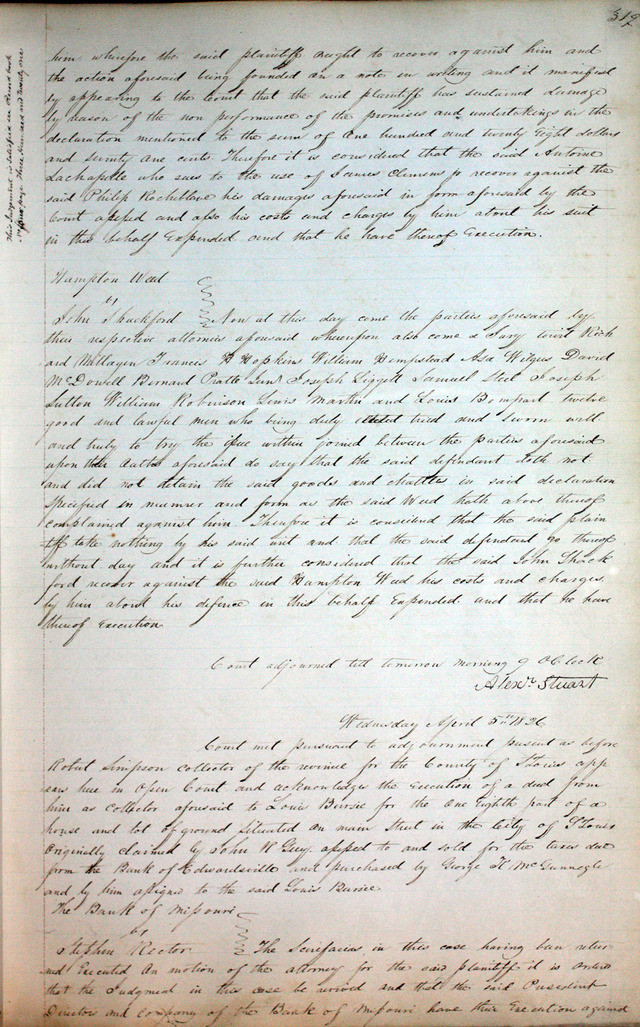 319
This Judgment is satisfied on Record book
page three hundred and twenty one
him wherefore the said plaintiff ought to recover against him and
the action aforesaid being founded on a note in writing and it manifest
by appearing to the Court that the said plaintiff has sustained damage
by reason of the non performance of the promises and undertakings in the
declaration mentioned to the sum of One hundred and twenty Eight dollars
and seventy one cents Therefore it is considered that the said Antoine
Lachapelle who sues to the use of James Clemens jr recover against the
said Philip Rocheblave his damages aforesaid in form aforesaid by the
Court assessed and also his costs and charges by him about his suit
in this behalf Expended and that he have thereof Execution.
Hampton Weed
vs
John Shackford Now at this day come the parties aforesaid by
their respective attornies aforesaid whereupon also come a Jury towit Rich
ard Milligen Francis H Hopkins William Hempstead Asa Wilgus David
McDowell Bernard Pratte Senr Joseph Liggett Samuel Steel Joseph
Sutton William Robinson Lewis Martin and Louis Bompart twelve
good and lawful men who being duly elected tried and sworn well
and truly to try the issue within joined between the parties aforesaid
upon their oaths aforesaid do say that the said defendant doth not
and did not detain the said goods and chattles in said declaration
Specified in manner and form as the said Weed hath above thereof
complained against him. Therefore it is considered that the said plain
tiff take nothing by his said writ and that the said defendant go thereof
without day and it is further considered that the said John Shack
ford recover against the said Hampton Weed his costs and charges
by him about his defence in this behalf Expended and that he have
thereof Execution
Court adjourned till tomorrow morning 9 OClock
Alexr. Stuart
Wednesday April 5th 1826
Court met pursuant to adjournment present as before
Robert Simpson collector of the revenue for the County of St Louis app
ears here in Open Court and acknowledges the Execution of a deed from
him as collector aforesaid to Louis Bursie for the One Eighth part of a
house and lot of ground situated on main Street in the City of St Louis
Originally claimed by John W Guy. assessed to and sold for the taxes due
from the Bank of Edwardsville and purchased by George H McGunnegle
and by him assigned to the said Louis Bursie
The Bank of Missouri
vs
Stephen Rector The Scirefacias in this case having been retur
ned Executed On motion of the attorney for the said plaintiff it is Ordered
that the Judgment in this case be revived and that the said President
Directors and company of the Bank of Missouri have their Execution against